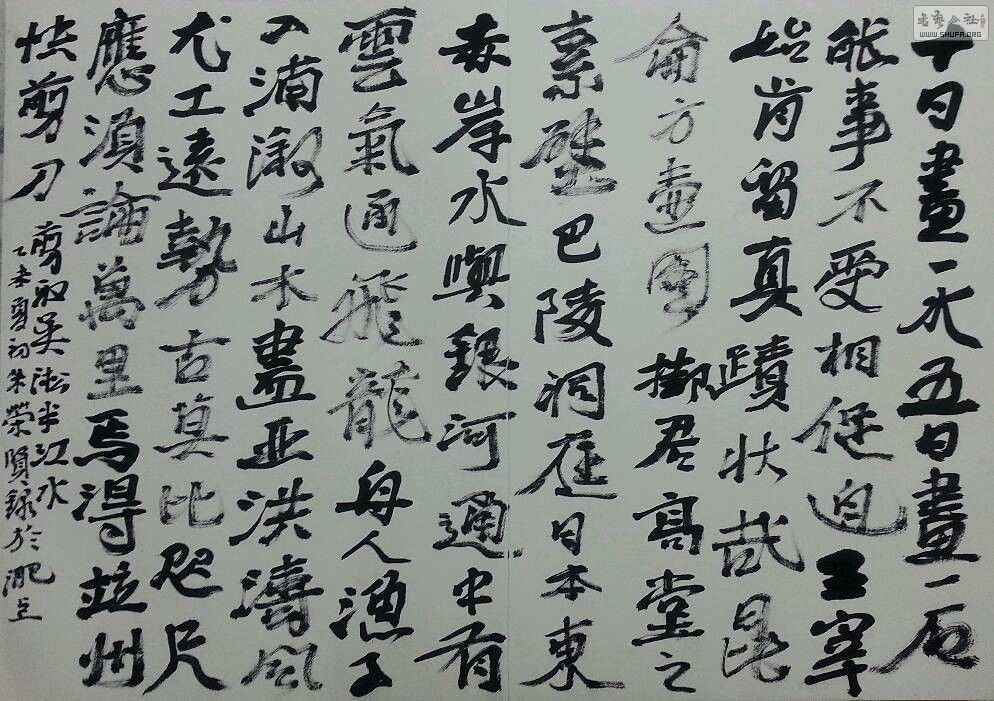 十日畫一水五日畫一石
能事不受相促迫王宰
始肯留真蹟壯哉昆
侖方壺圖掛君高堂之
素壁巴陵洞庭日本東
赤岸水與銀河通中有
雲氣通飛龍舟人漁子
入浦漵山木盡亞洪濤風
尤工遠勢古莫比咫尺
應須論萬里焉得並州
快剪刀剪取吳淞半江水
乙未夏初朱榮賢錄於淝上
書藝公社
WWW.SHUFA.ORG